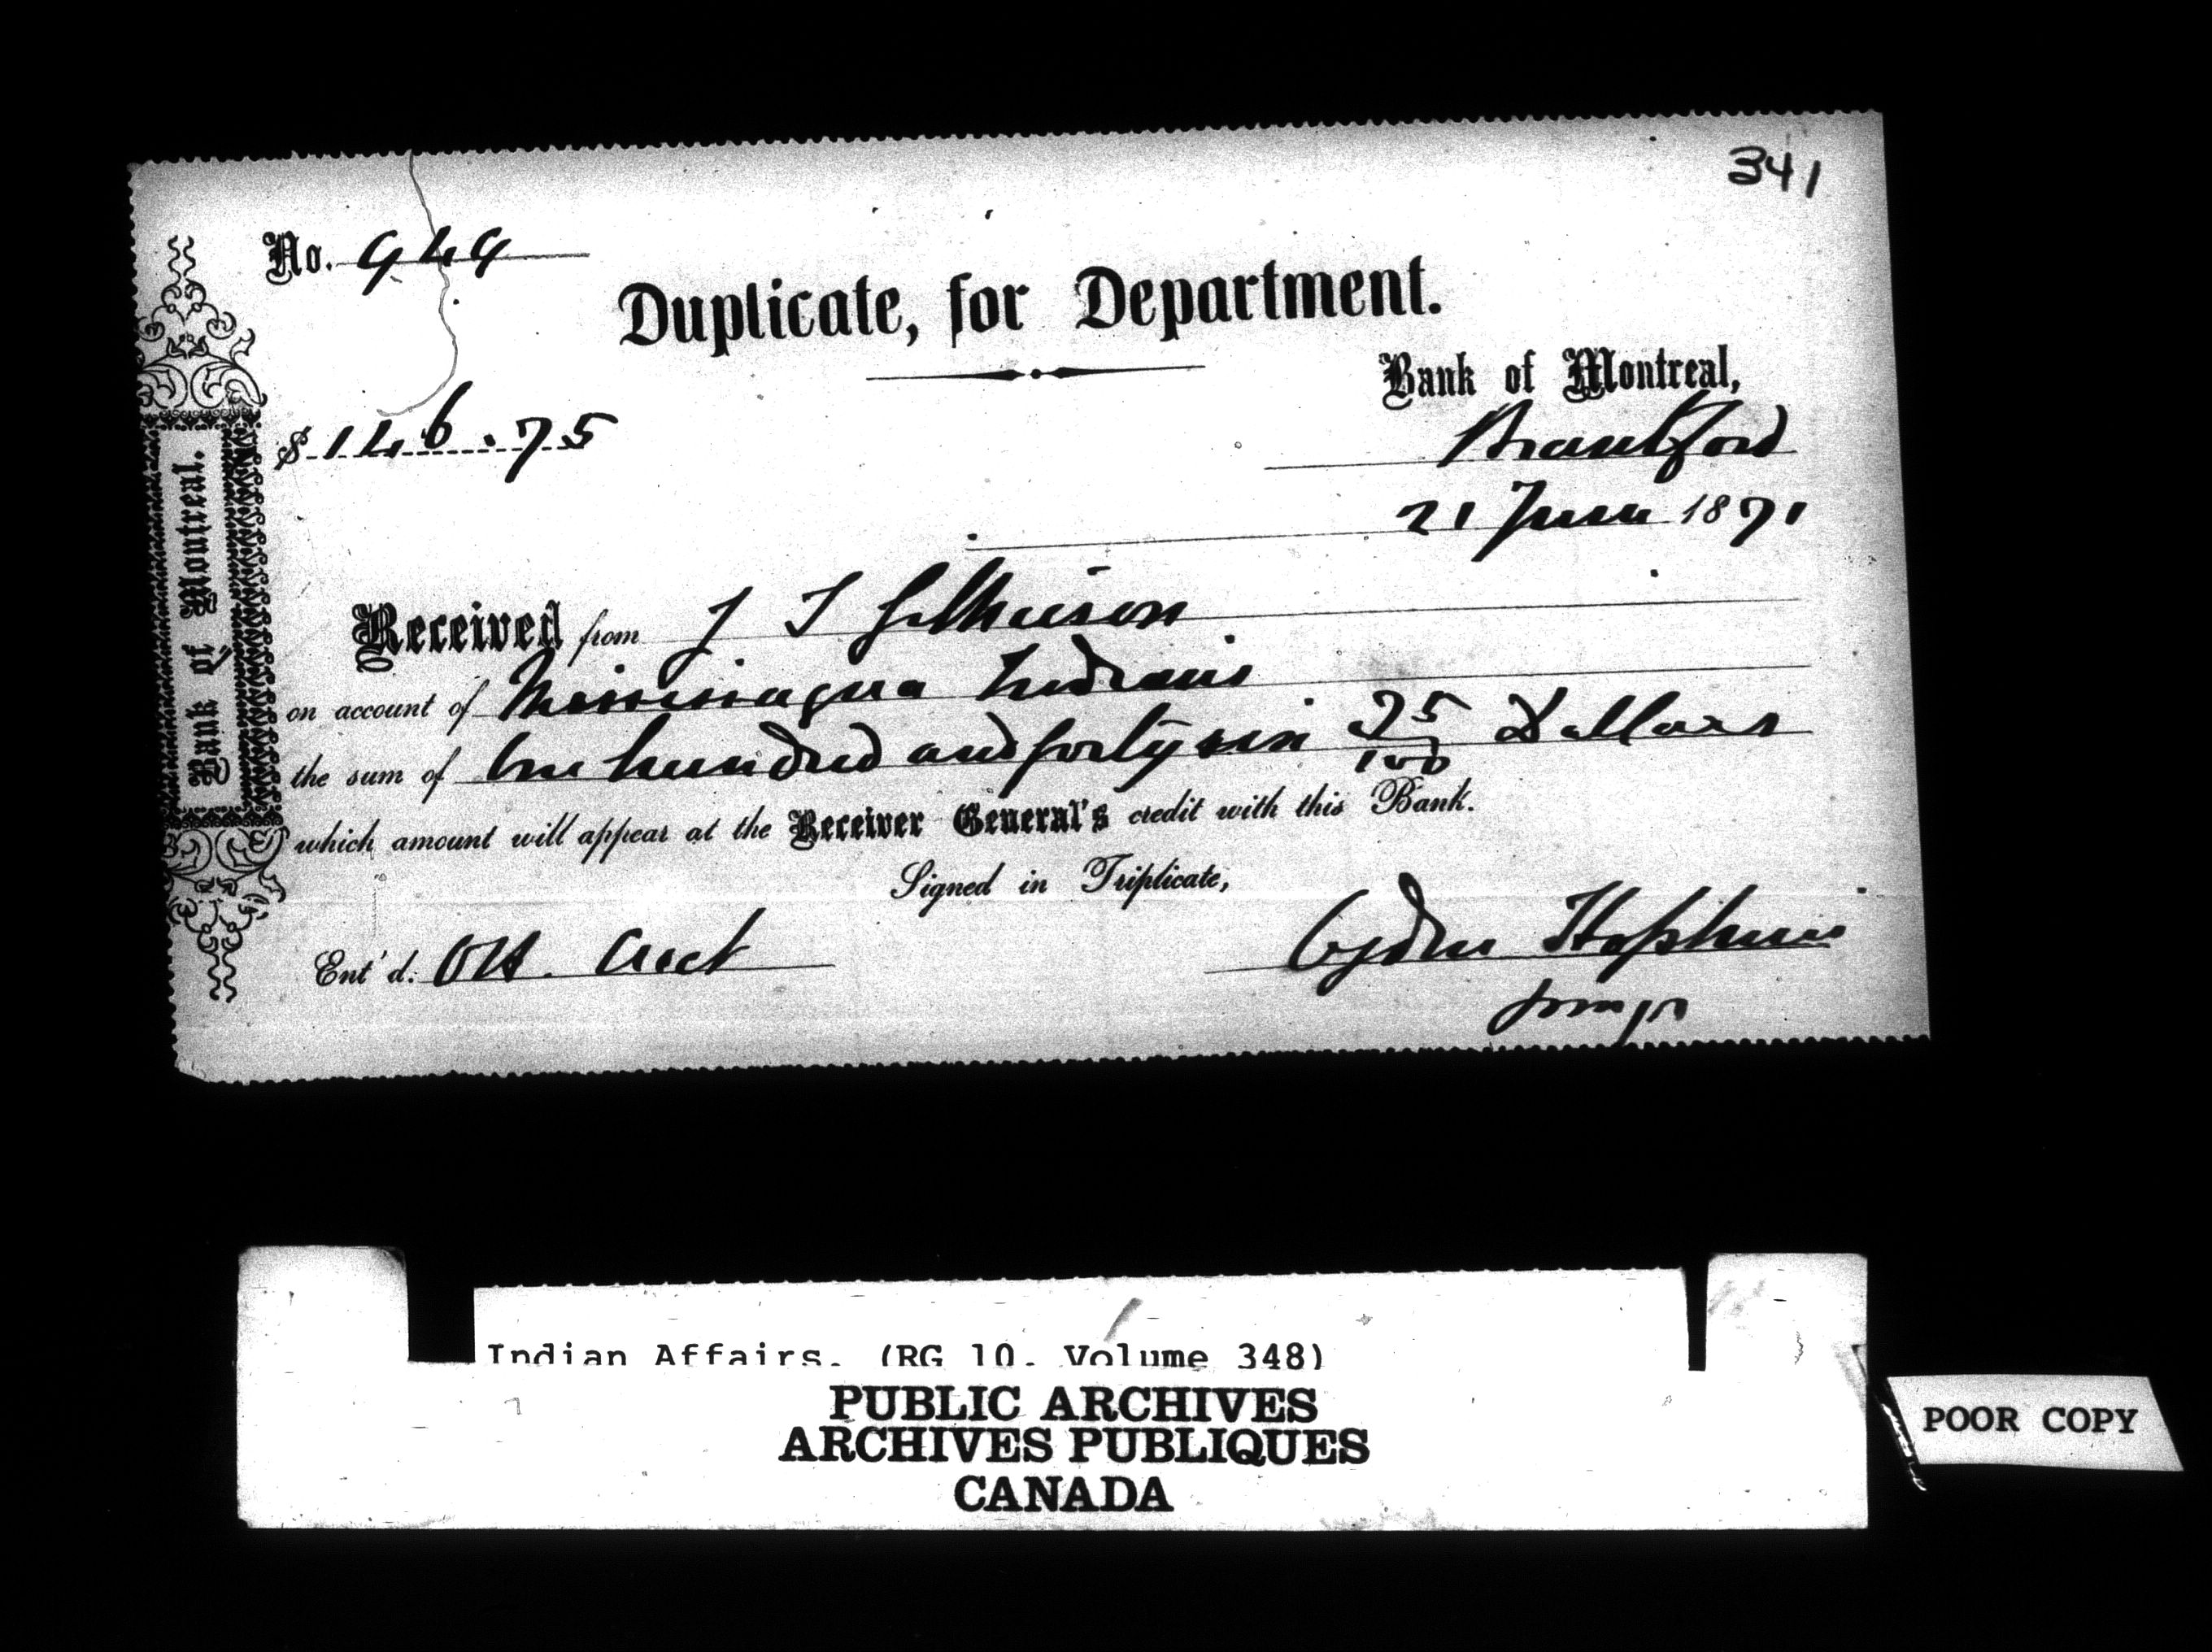 341
No. 949
Duplicate, for Department.
Bank of Montreal,
$ 146.75
Brantford
21 June 1871
Received from J T Gilkison
on account of Mississagua Indians
the sum of One hundred and forty six 75/100 Dollars
which amount will appear at the Receiver General's credit with this Bank.
Signed in Triplicate,
Ent'd.
Hopkins
Bank of Montreal.
Indian Affairs. (RG 10, Volume 348)
PUBLIC ARCHIVES
ARCHIVES PUBLIQUES
CANADA
POOR COPY